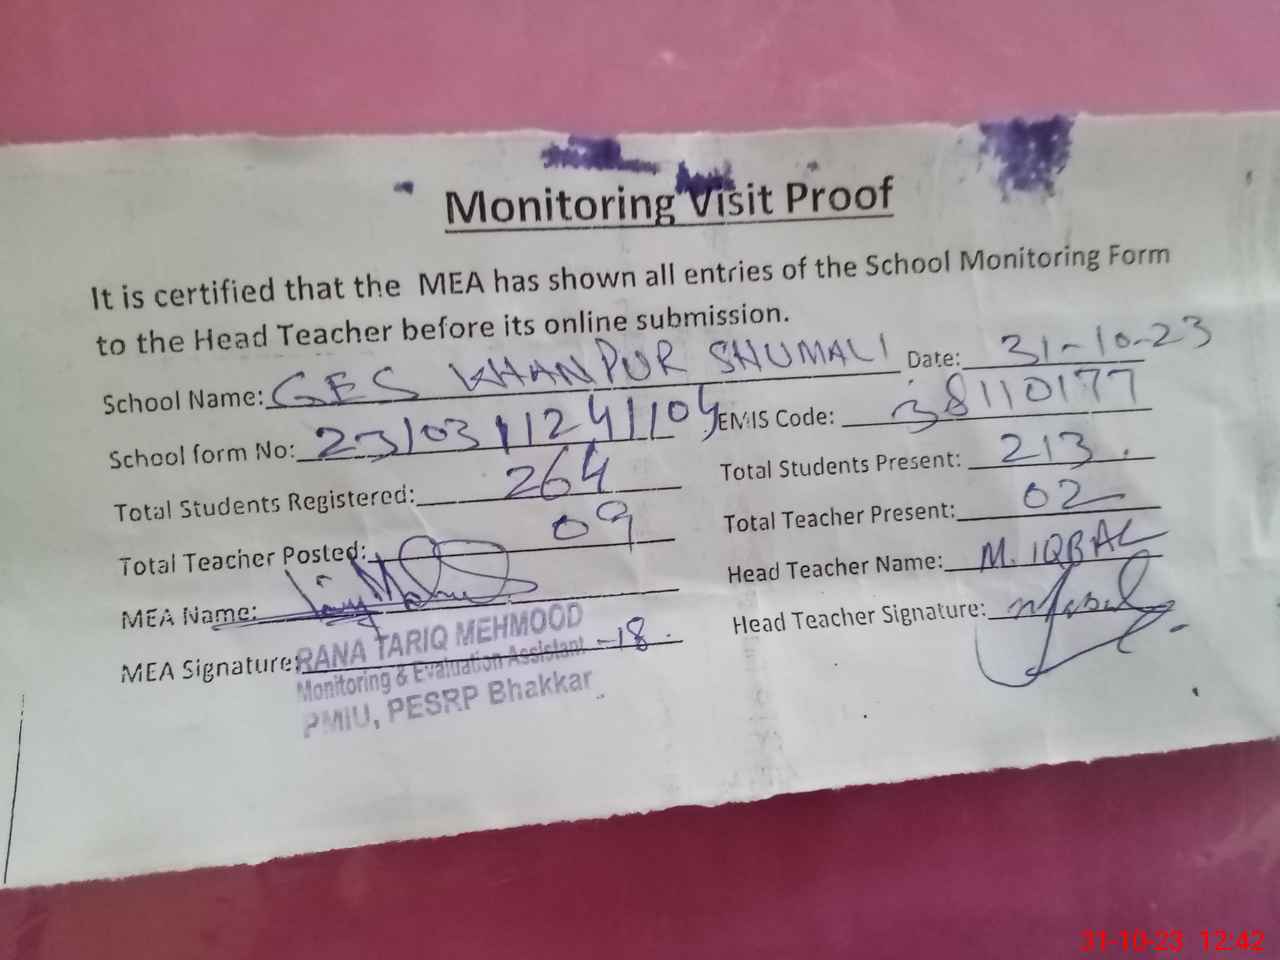 Monitoring Visit Proof
It is certified that the MEA has shown all entries of the School Monitoring Form
to the Head Teacher before its online submission.
School Name: GES KHANPUR SHUMALI Date: 31-10-23
School form No: 23/03/1124/104 EMIS Code: 38110177
Total Students Registered: 264 Total Students Present: 213
Total Teacher Posted: 09 Total Teacher Present: 02
MEA Name: Head Teacher Name: M. IQBAL
MEA Signature: -18. Head Teacher Signature:
RANA TARIQ MEHMOOD
Monitoring & Evaluation Assistant
PMIU, PESRP Bhakkar
31-10-23 12:42